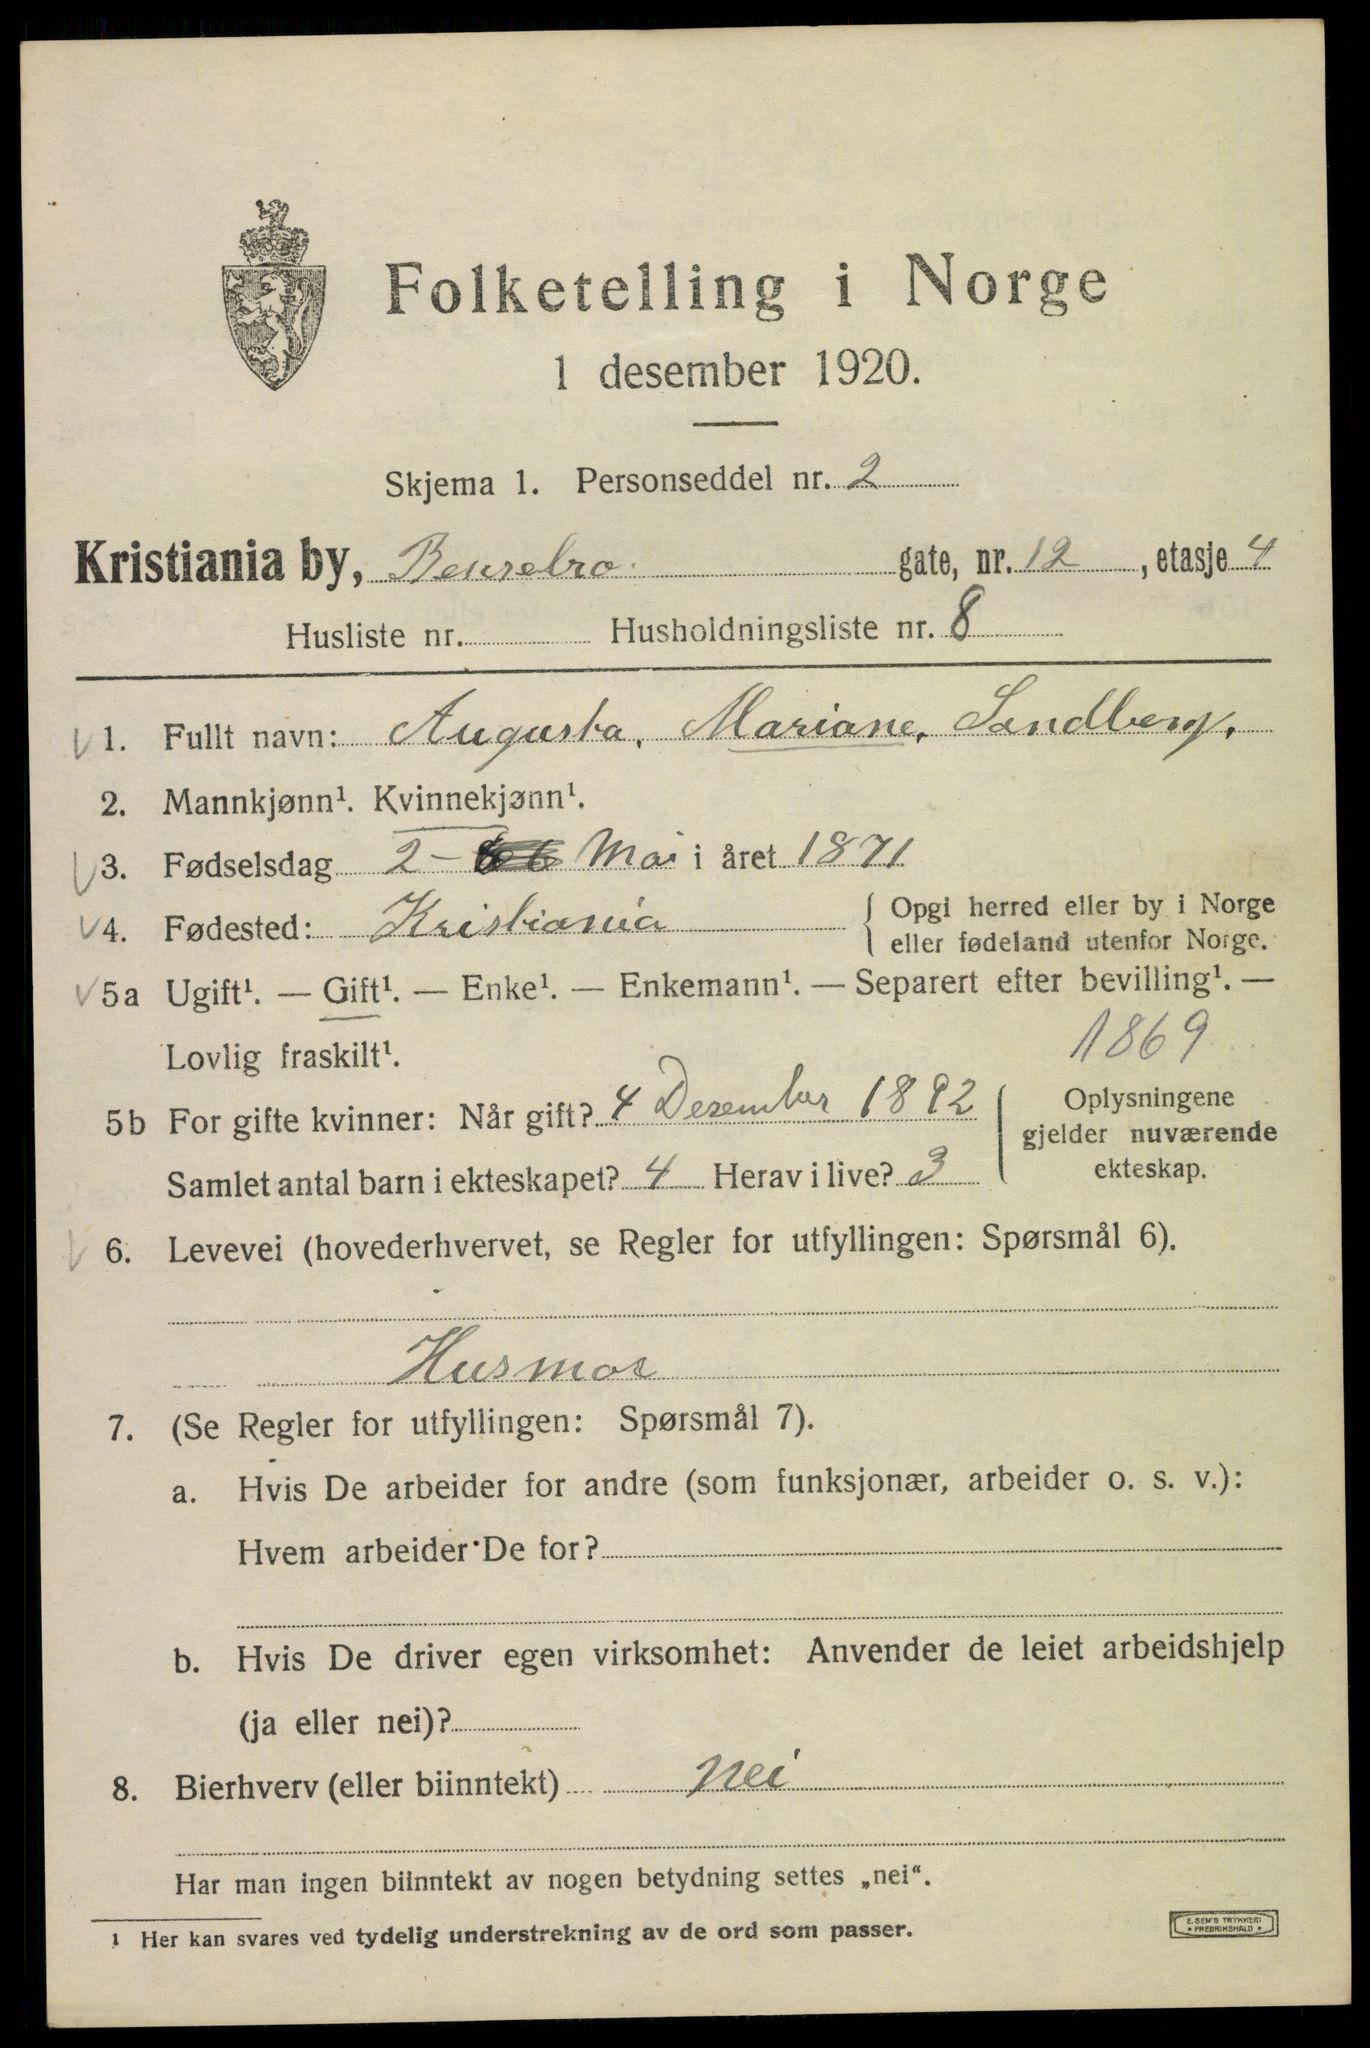 Folketelling i Norge
1 desember 1920.
Skjema 1. Personseddel nr. 2
Kristiania by, Bensebro. gate, nr. 12, etasje 4
Husliste nr. Husholdningsliste nr. 8
1. Fullt navn: Augusta, Mariane, Sandberg,
2. Mannkjønn¹. Kvinnekjønn¹.
3. Fødselsdag 2 - Mai i året 1871
4. Fødested: Kristiania { Opgi herred eller by i Norge
eller fødeland utenfor Norge.
5a Ugift¹. — Gift¹. — Enke¹. — Enkemann¹. — Separert efter bevilling¹. —
Lovlig fraskilt¹. 1869
5b For gifte kvinner: Når gift? 4 Desember 1892 { Oplysningene
gjelder nuværende
ekteskap.
Samlet antal barn i ekteskapet? 4 Herav i live? 3
6. Levevei (hovederhvervet, se Regler for utfyllingen: Spørsmål 6).
Husmor
7. (Se Regler for utfyllingen: Spørsmål 7).
a. Hvis De arbeider for andre (som funksjonær, arbeider o. s. v.):
Hvem arbeider De for?
b. Hvis De driver egen virksomhet: Anvender de leiet arbeidshjelp
(ja eller nei)?
8. Bierhverv (eller biinntekt) nei
Har man ingen biinntekt av nogen betydning settes „nei“.
1 Her kan svares ved tydelig understrekning av de ord som passer.
E. SEM'S TRYKKERI
• FREDRIKSHALD •